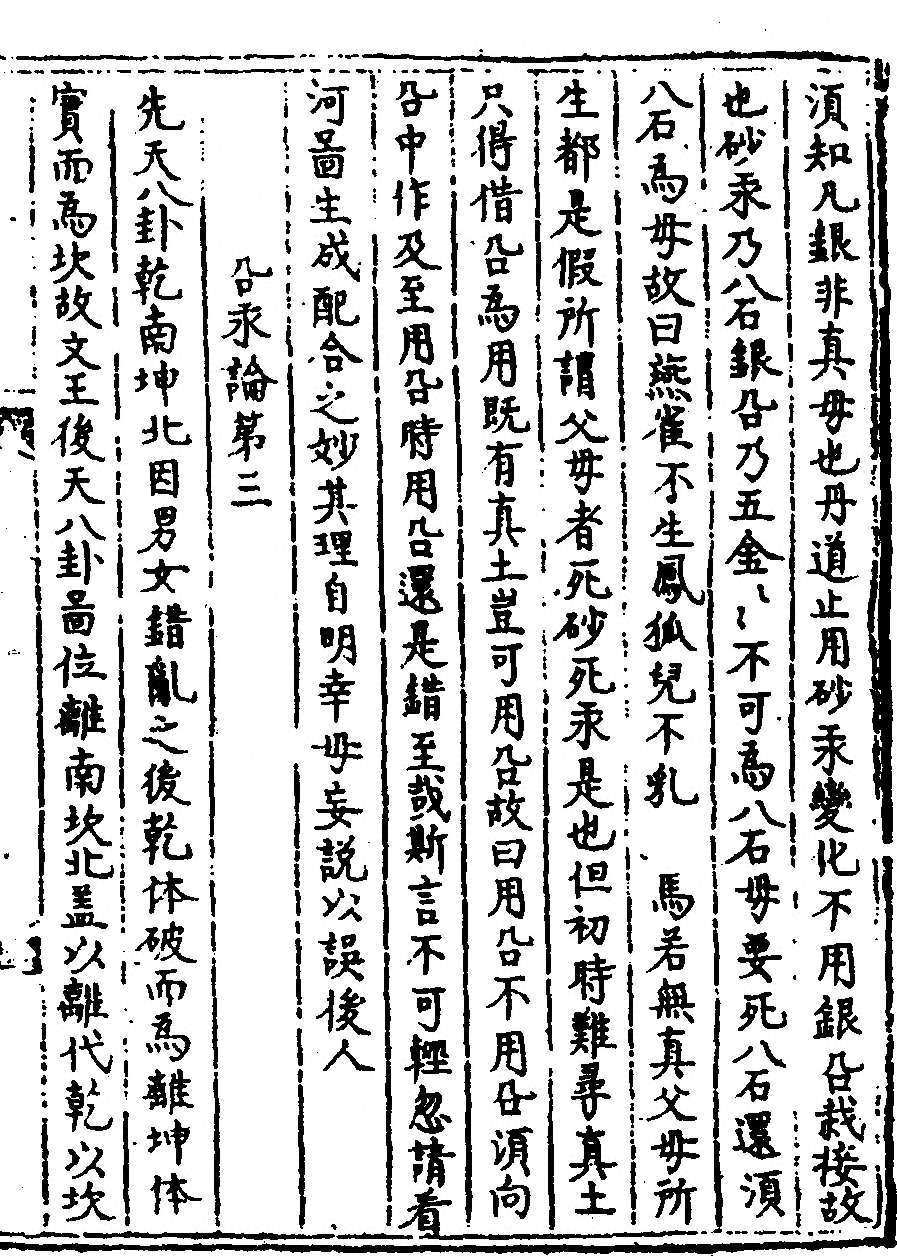 須知凡銀非真母也丹道止用砂汞變化不用銀㕣栽接故
也砂汞乃八石銀㕣乃五金〻不可為八石母要死八石還須
八石為母故曰燕雀不生鳳狐兒不乳 馬若無真父母所
生都是假所謂父母者死砂死汞是也但初時難尋真土
只得借㕣為用既有真土豈可用㕣故曰用㕣不用㕣須向
㕣中作及至用㕣時用㕣還是錯至哉斯言不可輕忽請看
河啚生成配合之妙其理自明幸毋妄説以誤後人
㕣汞論第三
先天八卦乾南坤北因男女錯亂之後乾体破而為離坤体
實而為坎故文王後天八卦啚位離南坎北盖以離代乾以坎